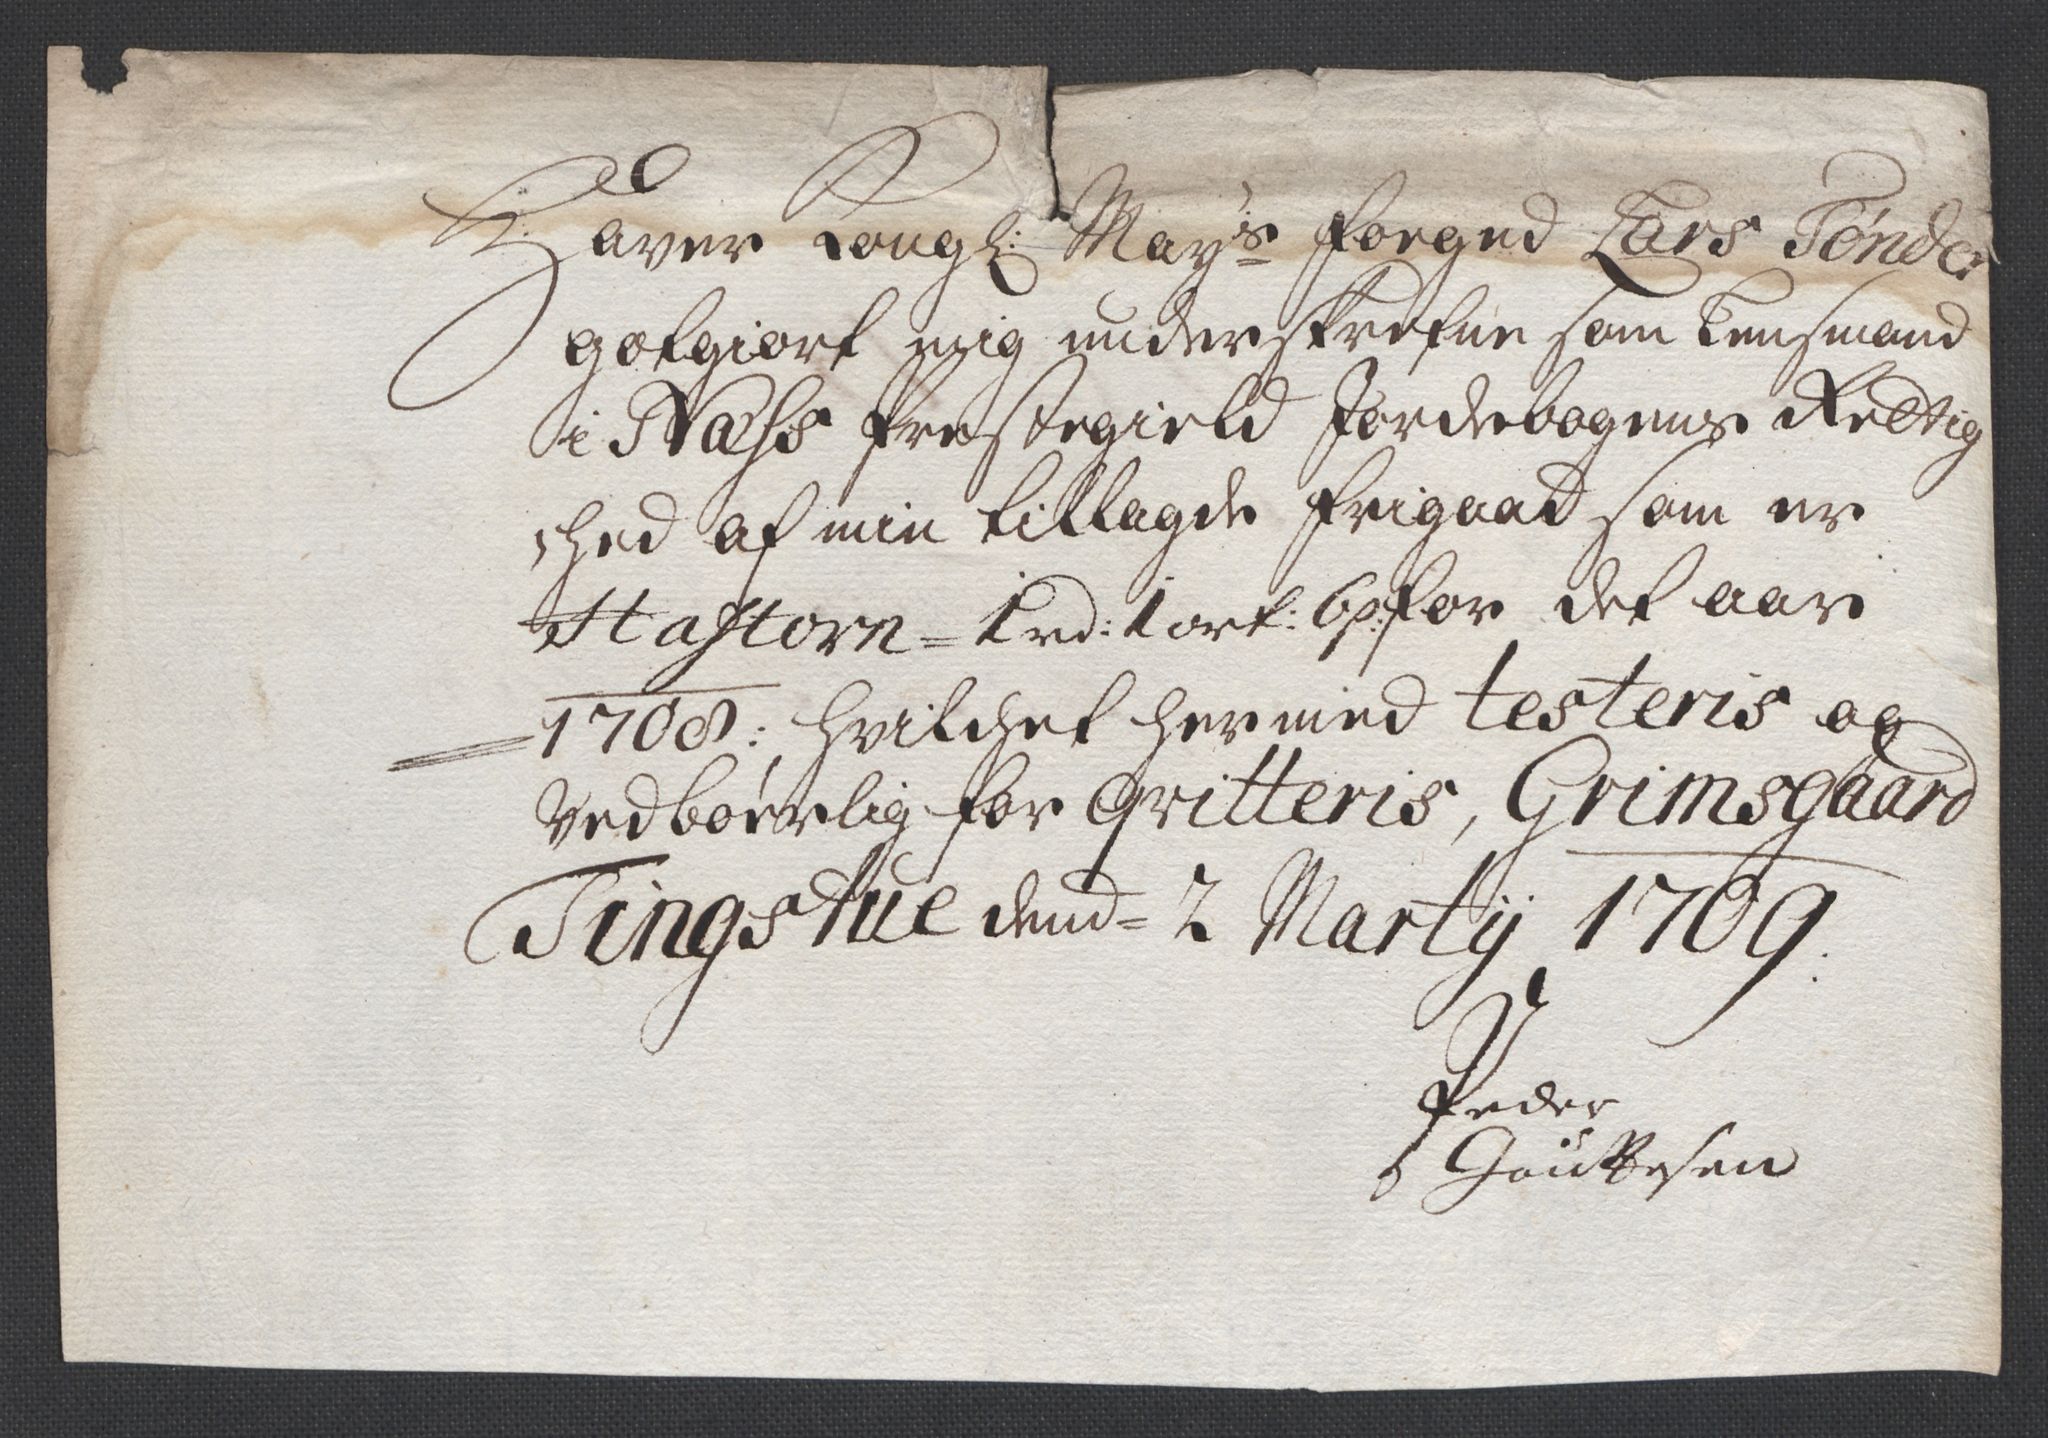 Haver Kongl: May's foeged Lars Tønder
gotgiort mig underskrefne som Lensmand
i Næss Prestegield Jordebogens Rettig
:hed af min tillagde frigaad som er
Haftorn = 1 rd: 1 ort: 6 s: for det aar
1708: hvilchet hermed testeris og
vedbørlig for qvitteris, Grimsgaard
Tingstue dend = 2 Martij 1709.
Peder